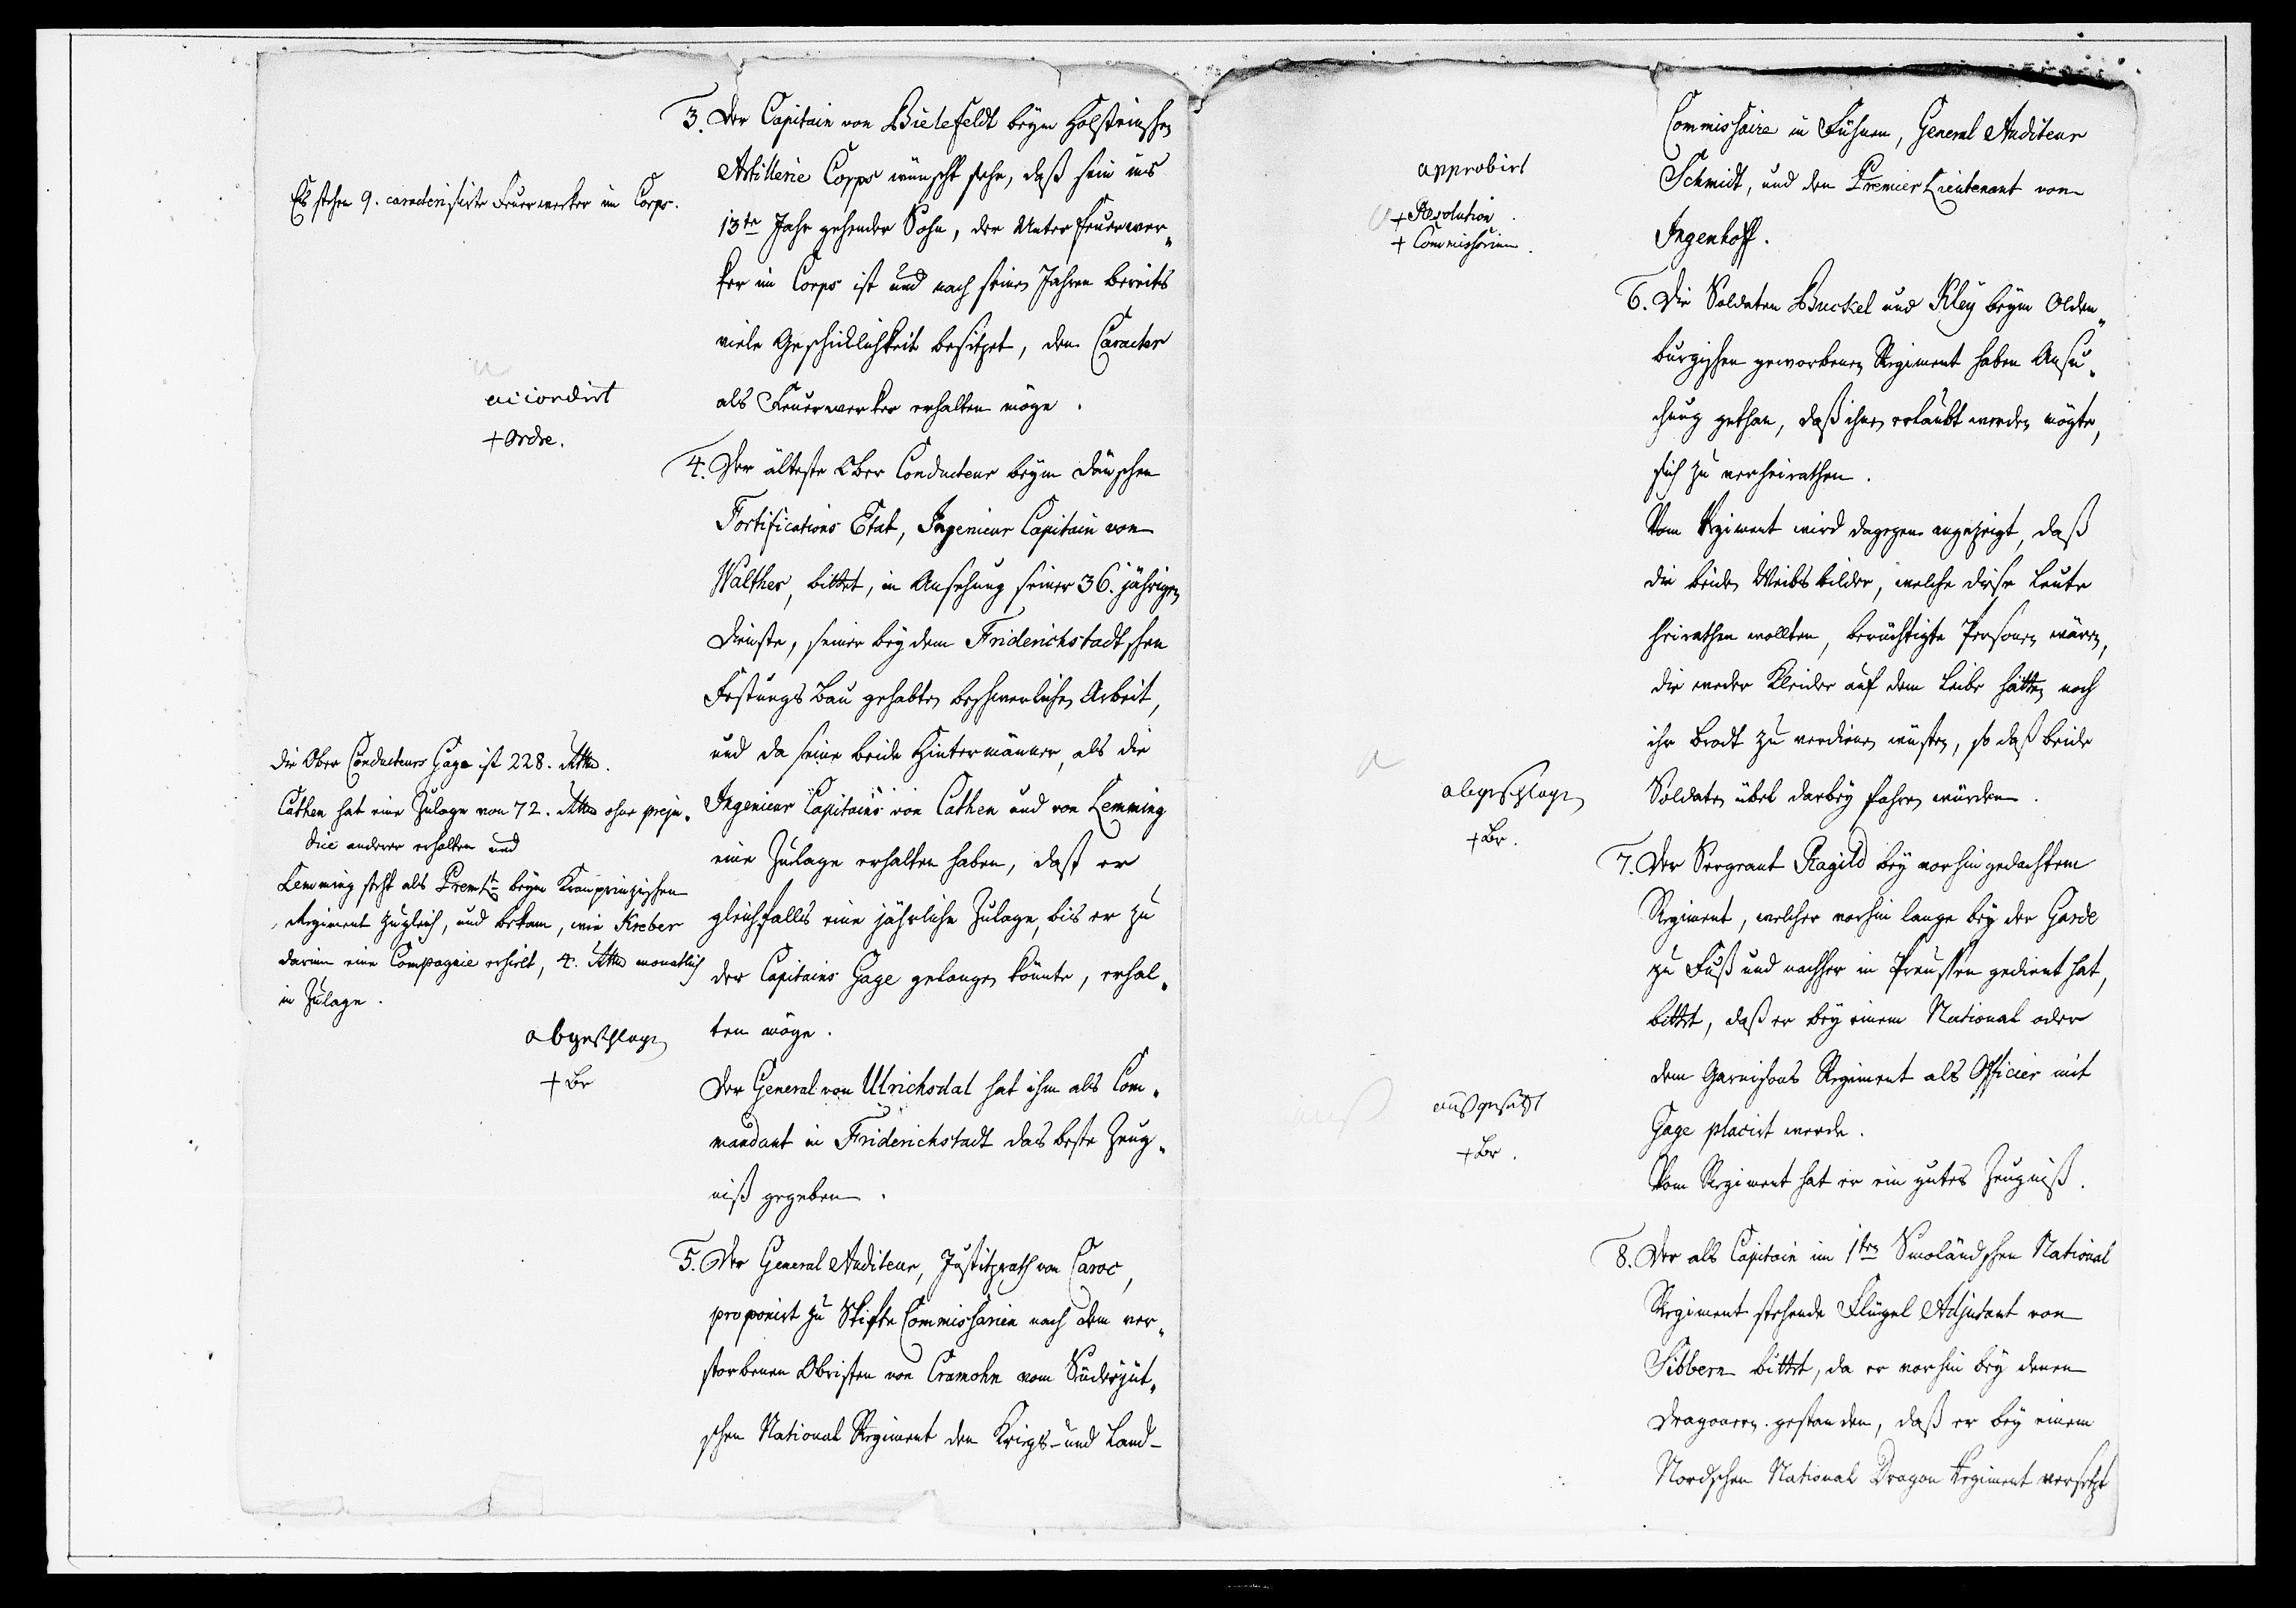 3. Der Capitain von Bielefeldt beym Holsteinschen
Artillerie Corps wünscht sehr, daß sein ins
13te Jahr gehender Sohn, der Unter Feuerwer„
ker im Corps ist und nach seinen Jahren bereits
viele Geschicklichkeit besitzet, den Caracter
als Feuerwerker erhalten möge.
Es stehen 9. caracterisirte Feuerwerker im Corps.
accordirt
+ Ordre.
4. Der älteste Ober Conducteur beym dänschen
Fortifications Etat, Ingenieur Capitain von
Walther, bittet, in Ansehung seiner 36. jährigen
Dienste, seiner bey dem Friderichstadtschen
Festungs Bau gehabten beschwerlichen Arbeit,
und da seine beide Hintermänner, als die
Ingenieur Capitains von Cathen und von Lemming
eine Zulage erhalten haben, daß er
gleichfalls eine jährliche Zulage, bis er zu
der Capitains Gage gelangen könnte, erhal„
ten möge.
Der General von Ulrichsdal hat ihm als Com„
mandant in Friderichstadt das beste Zeug„
niß gegeben.
Die Ober Conducteurs Gage ist 228. Rthlr.
Cathen hat eine Zulage von 72. Rthlr ohne preju„
dice anderer erhalten und
Lemming steht als Prem Lt beym Kronprinzischen
Regiment zugleich, und bekam, wie Kreber
darinn eine Compagnie erhielt, 4. Rthlr monatlich
in Zulage.
abgeschlagen
+ Br
5. Der General Auditeur, Justitzrath von Caroc,
proponirt zu Stifts Commissarien nach dem ver„
storbenen Obristen von Cramohn vom Süderjüt„
schen National Regiment den Kriegs- und Land-
Commissaire in Fühnen, General Auditeur
Schmidt, und den Premier Lieutenant von
Ingenhoff.
approbirt
+ Resolution.
+ Commissorium.
6. Die Soldaten Buckel und Kley beym Olden„
burgischen geworbenen Regiment haben Ansu„
chung gethan, daß ihnen erlaubt werden mögte,
sich zu verheirathen.
Vom Regiment wird dagegen angezeigt, daß
die beiden Weibsbilder, welche diese Leute
heirathen wollten, berüchtigte Personen wären,
die weder Kleider auf dem Leibe hätten noch
ihr Brodt zu verdienen wüsten, so daß beide
Soldaten übel darbey fahren würden.
abgeschlagen
+ Br.
7. Der Sergeant Ragild bey vorhin gedachtem
Regiment, welcher vorhin lange bey der Garde
zu Fuß und nachher in Preussen gedient hat,
bittet, daß er bey einem National oder
dem Garnisons Regiment als Officier mit
Gage placirt werde.
Vom Regiment hat er ein gutes Zeugniß.
ausgesetzt
+ Br.
8. Der als Capitain im 1ten Smoländschen National
Regiment stehende Flügel Adjutant von
Sibbern bittet, da er vorhin bey denen
Dragonern gestanden, daß er bey einem
Nordschen National Dragon Regiment versetzt